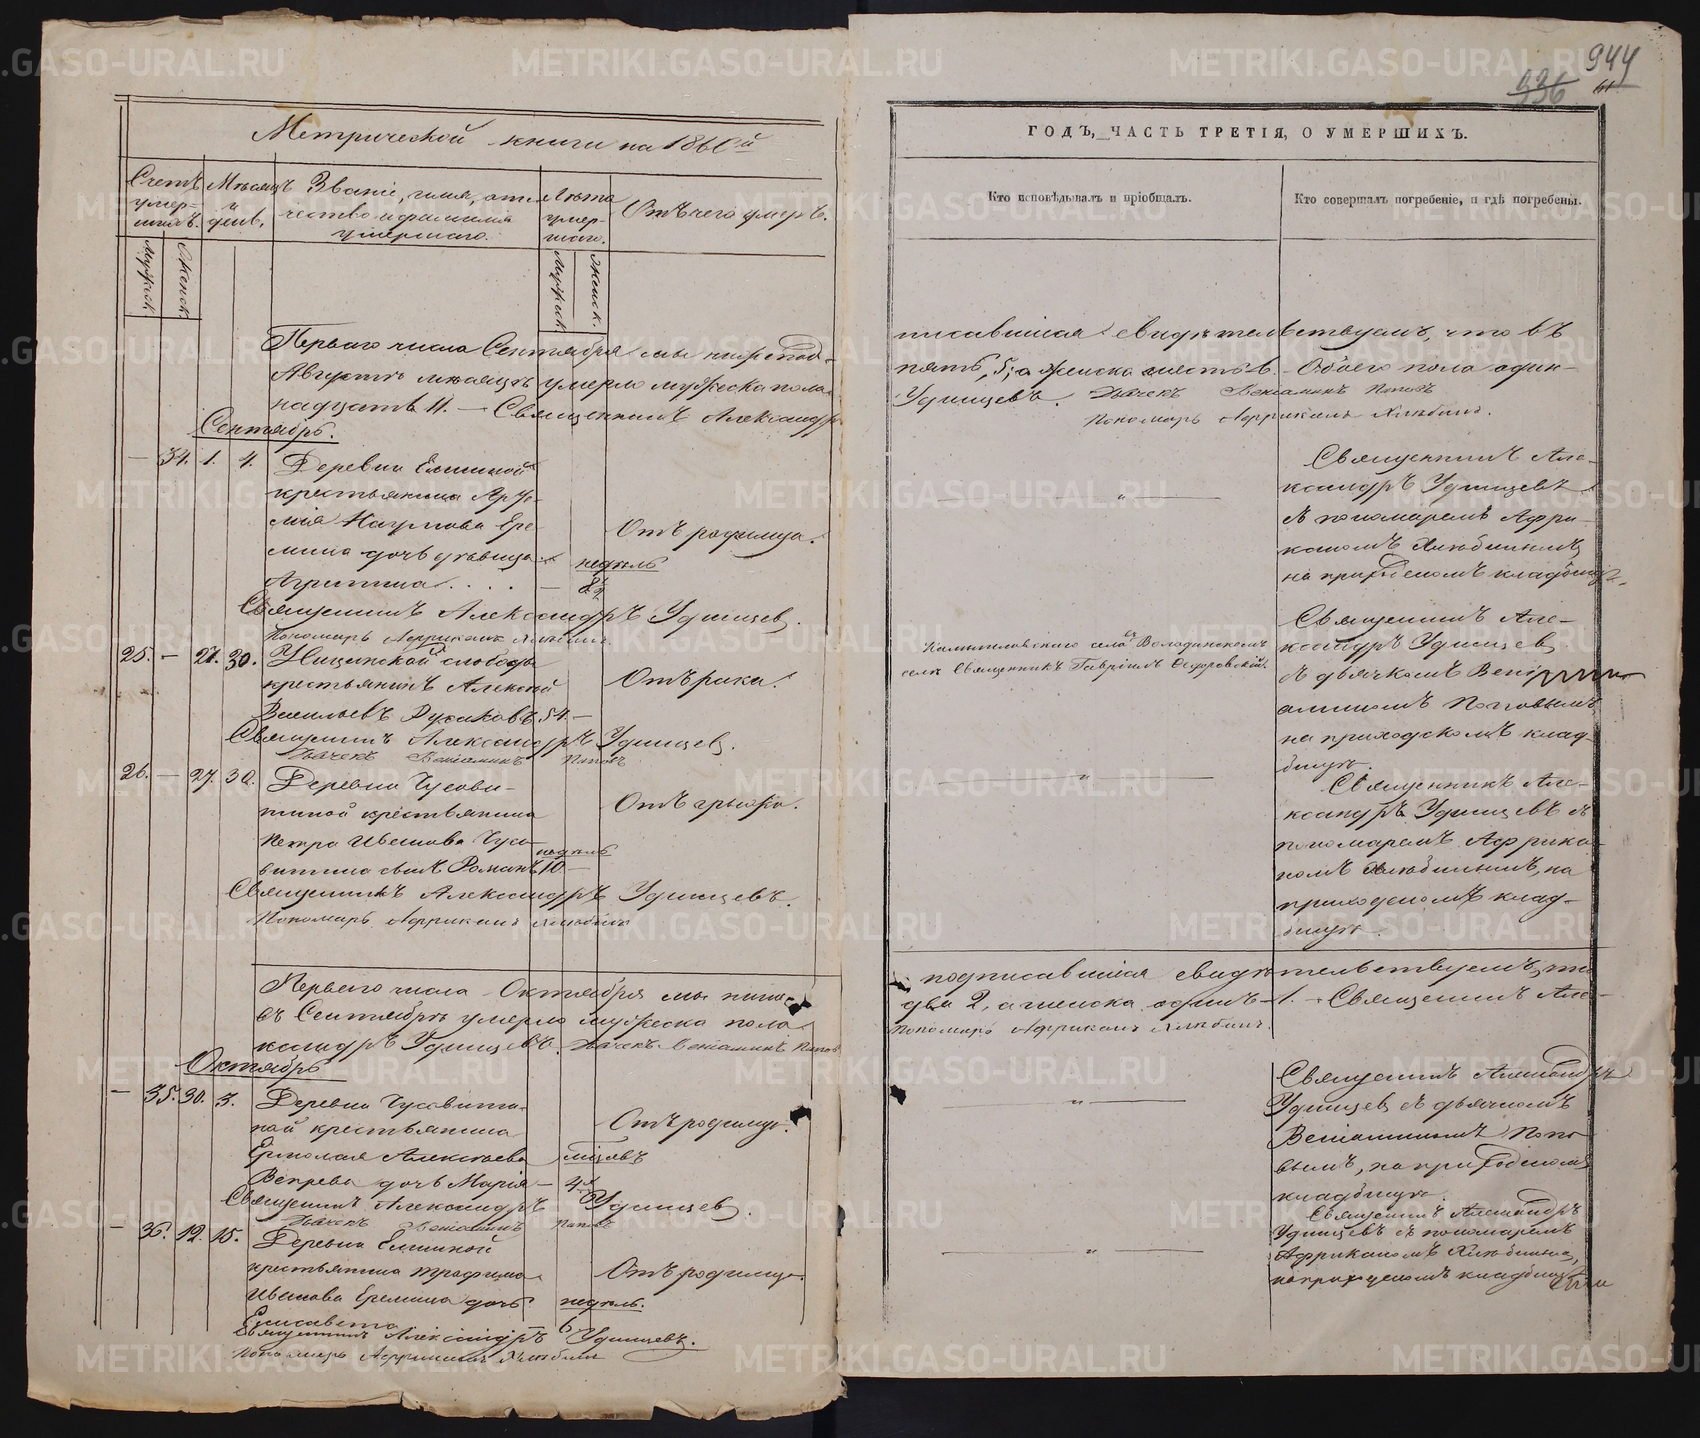 944
936
Метрической книги на 1860й
ГОДЪ, ЧАСТЬ ТРЕТІЯ, О УМЕРШИХЪ.
Счетъ умер-шихъ.
Мѣсяцъ и день.
Званіе, имя, отчество и фамилія умершаго.
Лѣта умер-шаго.
Отъ чего умеръ.
Кто исповѣдывалъ и пріобщалъ.
Кто совершалъ погребеніе, и гдѣ погребены.
Мужеск.
Женск.
Мужеск.
Женск.
Перваго числа Сентября мы нижепод-
писавшіяся свидѣтельствуемъ, что въ
Августѣ мѣсяцѣ умерло мужеска пола
пять, 5; а женска шесть 6. Обоего пола один-
надцать 11. — Священникъ Александръ
Удинцевъ. Дьячекъ Веніаминъ Поповъ
Пономарь Африканъ Хлюбинъ.
Сентябрь.
— 34. 1. 4. Деревни Еминой
крестьянина Арте-
мія Наумова Ере-
мина дочь дѣвица
Агрипина . . . . —
недѣль
8½
Отъ родимца.
Священникъ Але-
ксандръ Удинцевъ
съ пономаремъ Афри-
каномъ Хлюбинымъ,
на приходскомъ кладбищѣ.
Священникъ Александръ Удинцев.
Пономарь Африканъ Хлюбинъ.
25. — 27. 30. Ницинской слободы
крестьянинъ Алексѣй
Васильевъ Дусаковъ 54. —
Отъ рака.
села Священникъ Гавріилъ Федоровскій.
Священникъ Але-
ксандръ Удинцев
съ дьячкомъ Вені-
аминомъ Поповымъ
на приходскомъ клад-
бищѣ.
Священникъ Александръ Удинцев.
Дьячекъ Веніаминъ Поповъ
26. — 27. 30. Деревни Чусови-
тиной крестьянина
Петра Иванова Чусо-
витина сынъ Романъ
недѣль
10. —
Отъ грыжи.
Священникъ Але-
ксандръ Удинцевъ съ
пономаремъ Африка-
номъ Хлюбинымъ, на
приходскомъ клад-
бищѣ.
Священникъ Александръ Удинцевъ.
Пономарь Африканъ Хлюбинъ
Перваго числа Октября мы ниже-
подписавшіяся свидѣтельствуемъ, что
въ Сентябрѣ умерло мужеска пола
два 2, а женска одинъ — 1. — Священникъ Але-
ксандръ Удинцевъ. Дьячекъ Веніаминъ Попов
Пономарь Африканъ Хлюбинъ.
Октябрь
— 35. 30. 3. Деревни Чусовити-
ной крестьянина
Ермолая Алексѣева
Вепрева дочь Марія —
мѣсяцъ
4.
Отъ родимца.
Священникъ Александръ
Удинцев съ дьячкомъ
Веніаминомъ Попо-
вымъ, на приходскомъ
кладбищѣ.
Священникъ Александръ Удинцев.
Дьячекъ Веніаминъ Поповъ
— 36. 12. 15. Деревни Еминой
крестьянина Трофима
Иванова Еремина дочь
Елисавета
недѣль.
6
Отъ родимца.
Священникъ Александръ
Удинцевъ съ пономаремъ
Африканомъ Хлюбинымъ,
на приходскомъ кладбищѣ
Священникъ Александръ Удинцевъ.
Пономарь Африканъ Хлюбинъ
METRIKI.GASO-URAL.RU